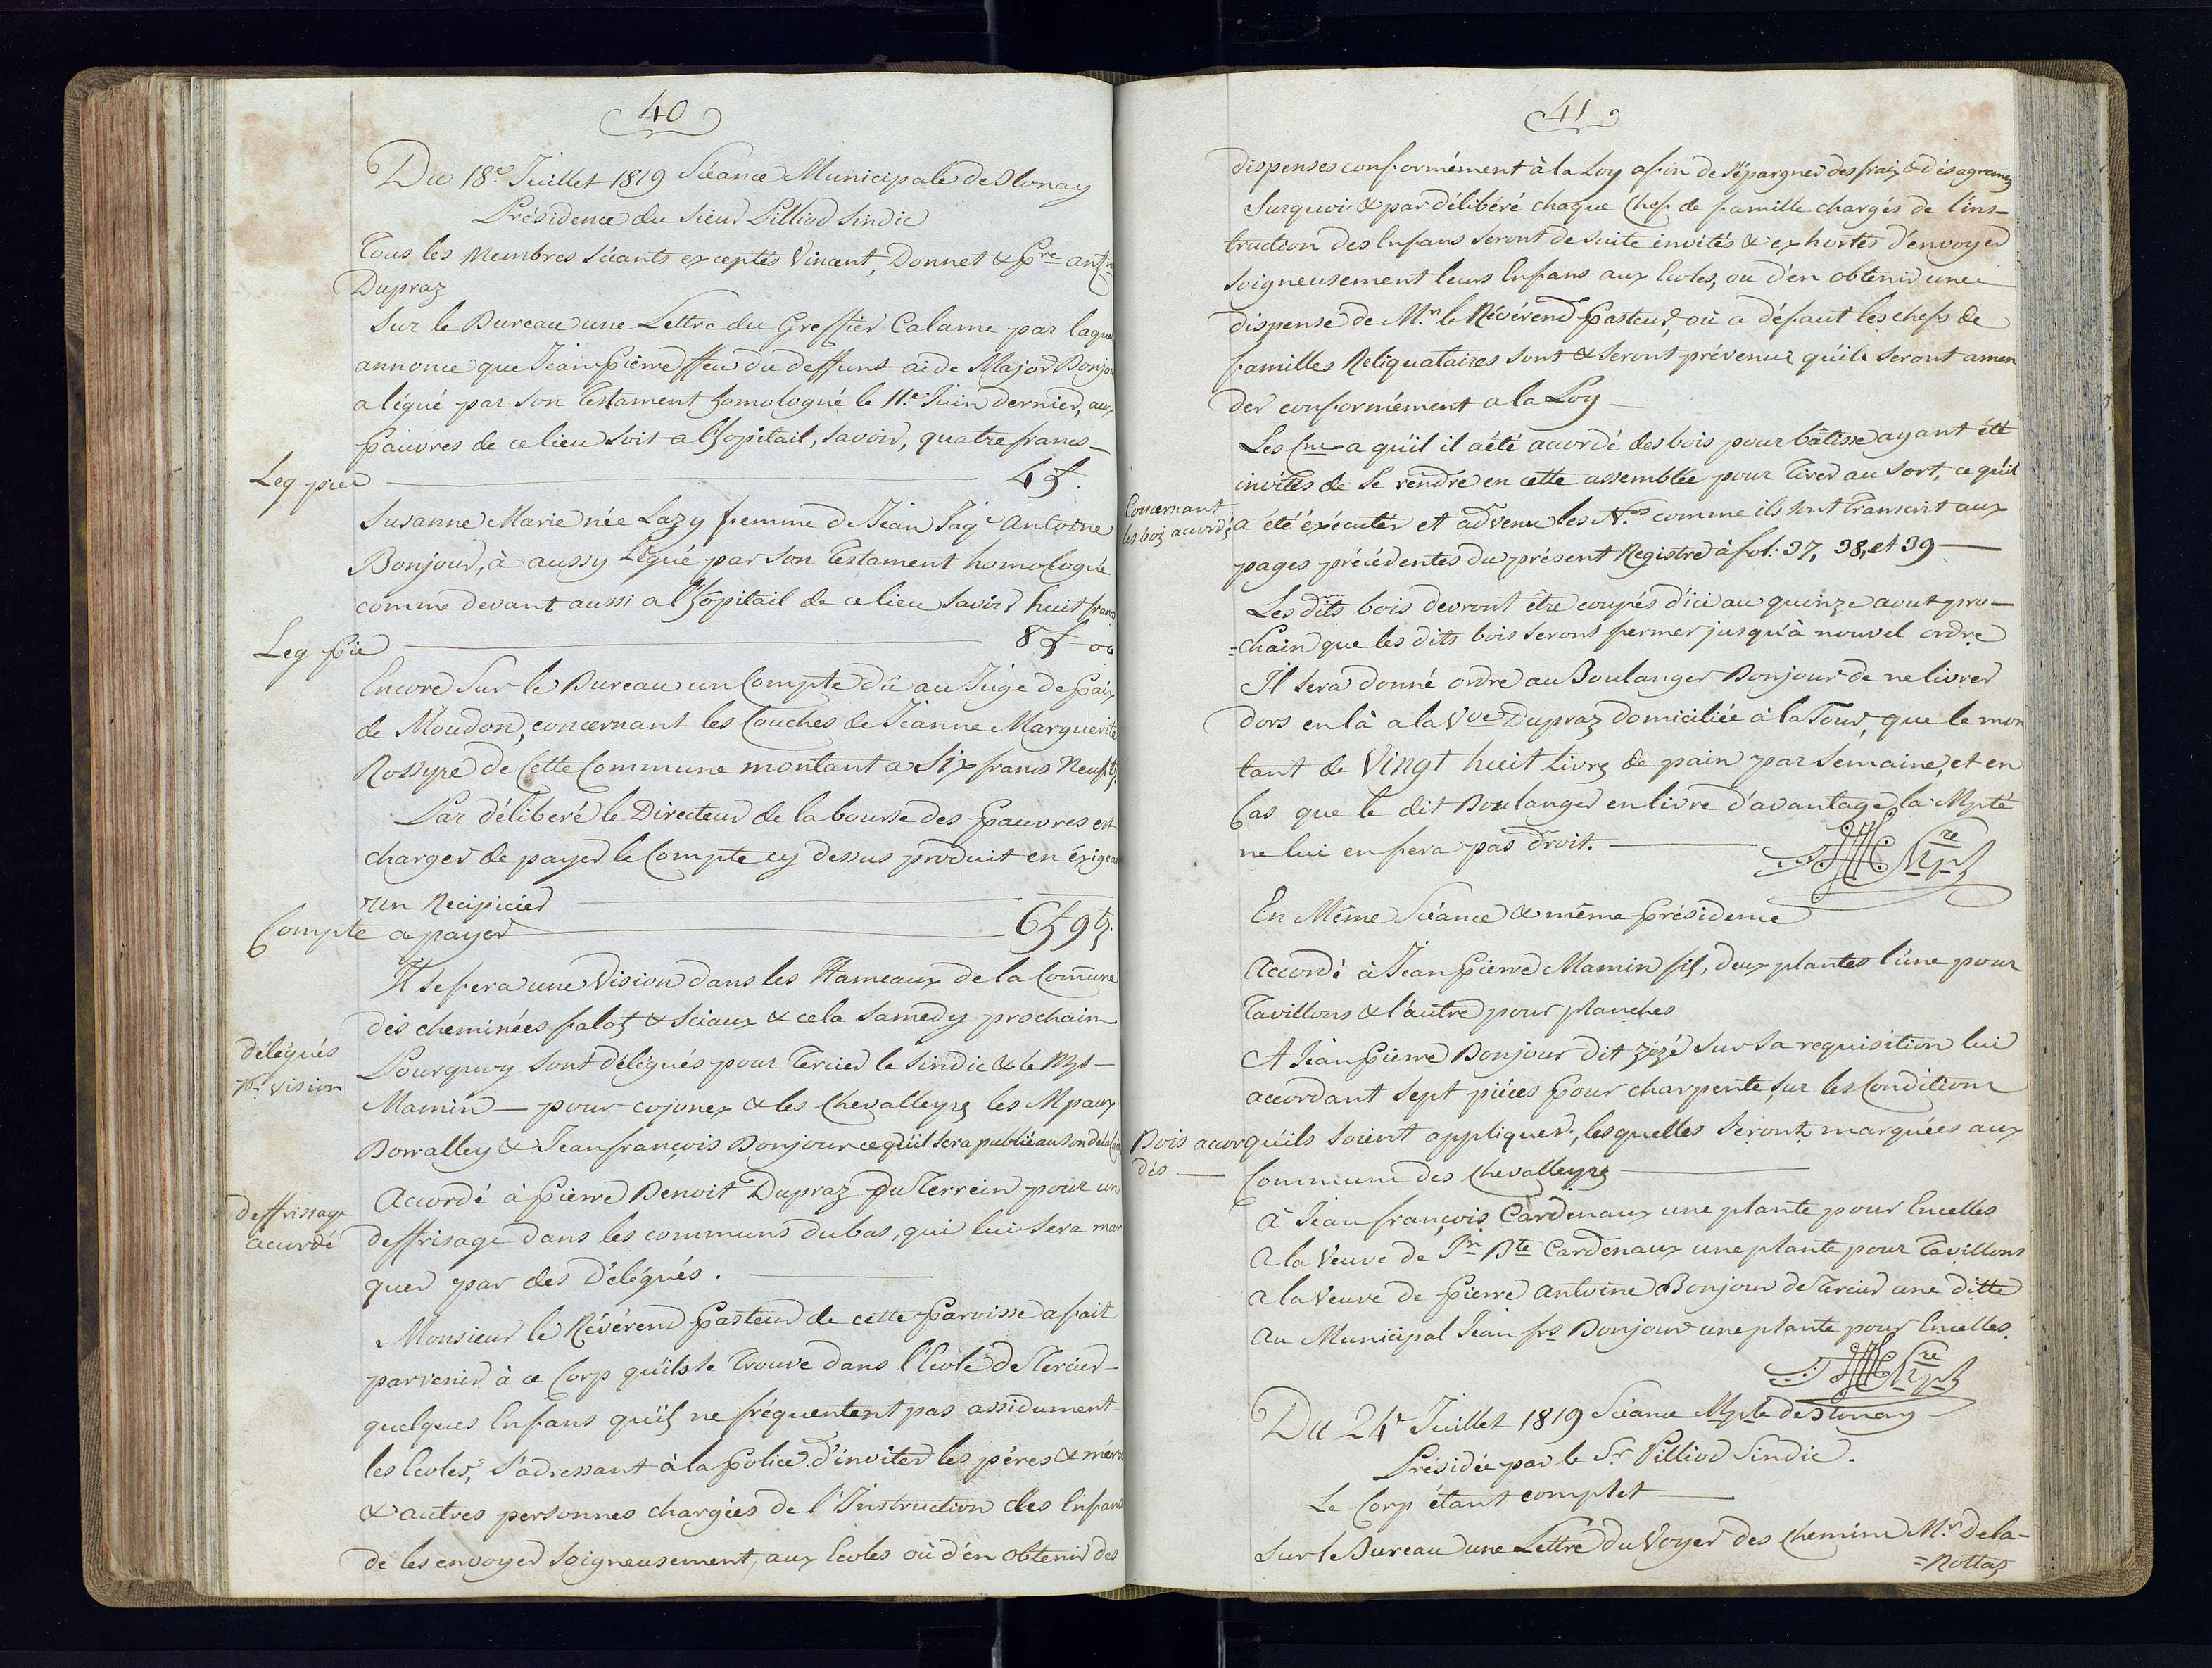 40
Du 18.e Juillet 1819 Séance Municipale de Blonay
Présidence du Sieur Pilliod Sindic
Tous les Membres Séants exceptés Vincent, Donnet & Pre ant.ne
Dupraz
Sur le Bureau une Lettre du Greffier Calame par laque
annonce que Jean Pierre ffeu du deffunt aide Major Bonjour
a légué par son Testament homologué le 11.e Juin dernier, aux
Pauvres de ce lieu soit a l'hopitail, savoir, quatre francs -
Leg pie 4 f.
Susanne Marie née Lazy femme d Jean Jaq.e Antoine
Bonjour, à aussy Légué par son Testament homologué
comme devant aussi a l'hopitail de ce lieu savoir huit francs
Leg pie 8 f 00
Encore Sur le Bureau un Compte dû au Juge de Paix
de Moudon, concernant les Couches de Jeanne Marguerite
Rossyre de Cette Commune montant a Six francs Neuf bz.
Par délibéré le Directeur de la bourse des Pauvres est
charger de payer le Compte cy dessus produit en éxigeant
un Recipicier
Compte a payer 6 f 9 bz.
Il se fera une Vision dans les Hameaux de la Comune
dès cheminées falotz & Sciaux & cela Samedy prochain
délégués
pr. vision
Pourquoy sont délégués pour Tercier le Sindic & le Mpl -
Mamin - pour cojonex & les Chevalleyre les Mpaux
Borralley & Jean françois Bonjour ce qu'il sera publié au son de la
deffrissage
accordé
Accordé à Pierre Benoit Dupraz du Terrein pour un
deffrisage dans les communs du bas, qui lui sera mar
quer par des Délégués.
Monsieur le Révérend Pasteur de cette Parroisse a fait
parvenir à ce Corp qu'ils se trouve dans l'Ecole de Tercier -
quelques Enfans qu'ilz ne fréquentent pas assidument
les Ecoles, s'adressant à la Police d'inviter les pères & mères
& autres personnes chargées de l'Instruction des Enfans
de les envoyer soigneusement, aux Ecoles où d'en obtenir des
41
dispenses conformément à la Loy afin de s'épargner des fraix & désagremez
Surquoi & par délibéré chaque Chef de famille chargés de l'ins-
truction des Enfans seront de suite invités & exhortés d'envoyer
soigneusement leurs Enfans aux Ecoles, ou d'en obtenir une
dispense de M.r le Révérend Pasteur, où a défaut les chefs de
familles Reliquataires sont & seront prévenuz qu'ils seront amen
der conformément a la Loy -
Les Cne a qu'il il a été accordé des bois pour bâtisse ayant été
invités de se rendre en cette assemblée pour tirer au sort, ce qu'il
Concernant
les boiz accordé
a été éxécuter et advenu les N.os comme ils sont transcrit aux
pages précédentes du présent Registre à fol. 37, 38, et 39 -
Les dits bois devront être coupés d'ici au quinze aout pro -
=chain que les dits bois seront fermer jusqu'à nouvel ordre
Il sera donné ordre au Boulanger Bonjour de ne livrer
dors en là a la Vve Dupraz domiciliée à la Tour, que le mon
tant de Vingt huit Livrz de pain par semaine, et en
Cas que le dit Boulanger en livre d'avantage, la Mpté
ne lui en fera pas droit.
En Même Séance & même Présidence
Accordé à Jean Pierre Mamin fils, deux plantes l'une pour
Tavillons & l'autre pour planches
A Jean Pierre Bonjour dit zézé sur sa requisition lui
accordant sept pièces pour charpente, sur les Conditions
Bois accor
dés -
qu'ils soient appliquer, lesquelles seront marquées aux
Commun des Chevalleyre
à Jean françois Cardenaux une plante pour Encelles
a la Veuve de Jn Bte Cardenaux une plante pour Tavillons
a la Veuve de Pierre Antoine Bonjour de Tercier une ditte
au Municipal Jean frs Bonjour une plante pour Encelles.
Du 24e Juillet 1819 Séance Mple de Blonay
Présidée par le Sr Pilliod Sindic.
Le Corp étant complet
Sur le Bureau une Lettre du Voyer des chemins M.r Dela-
=Rottaz